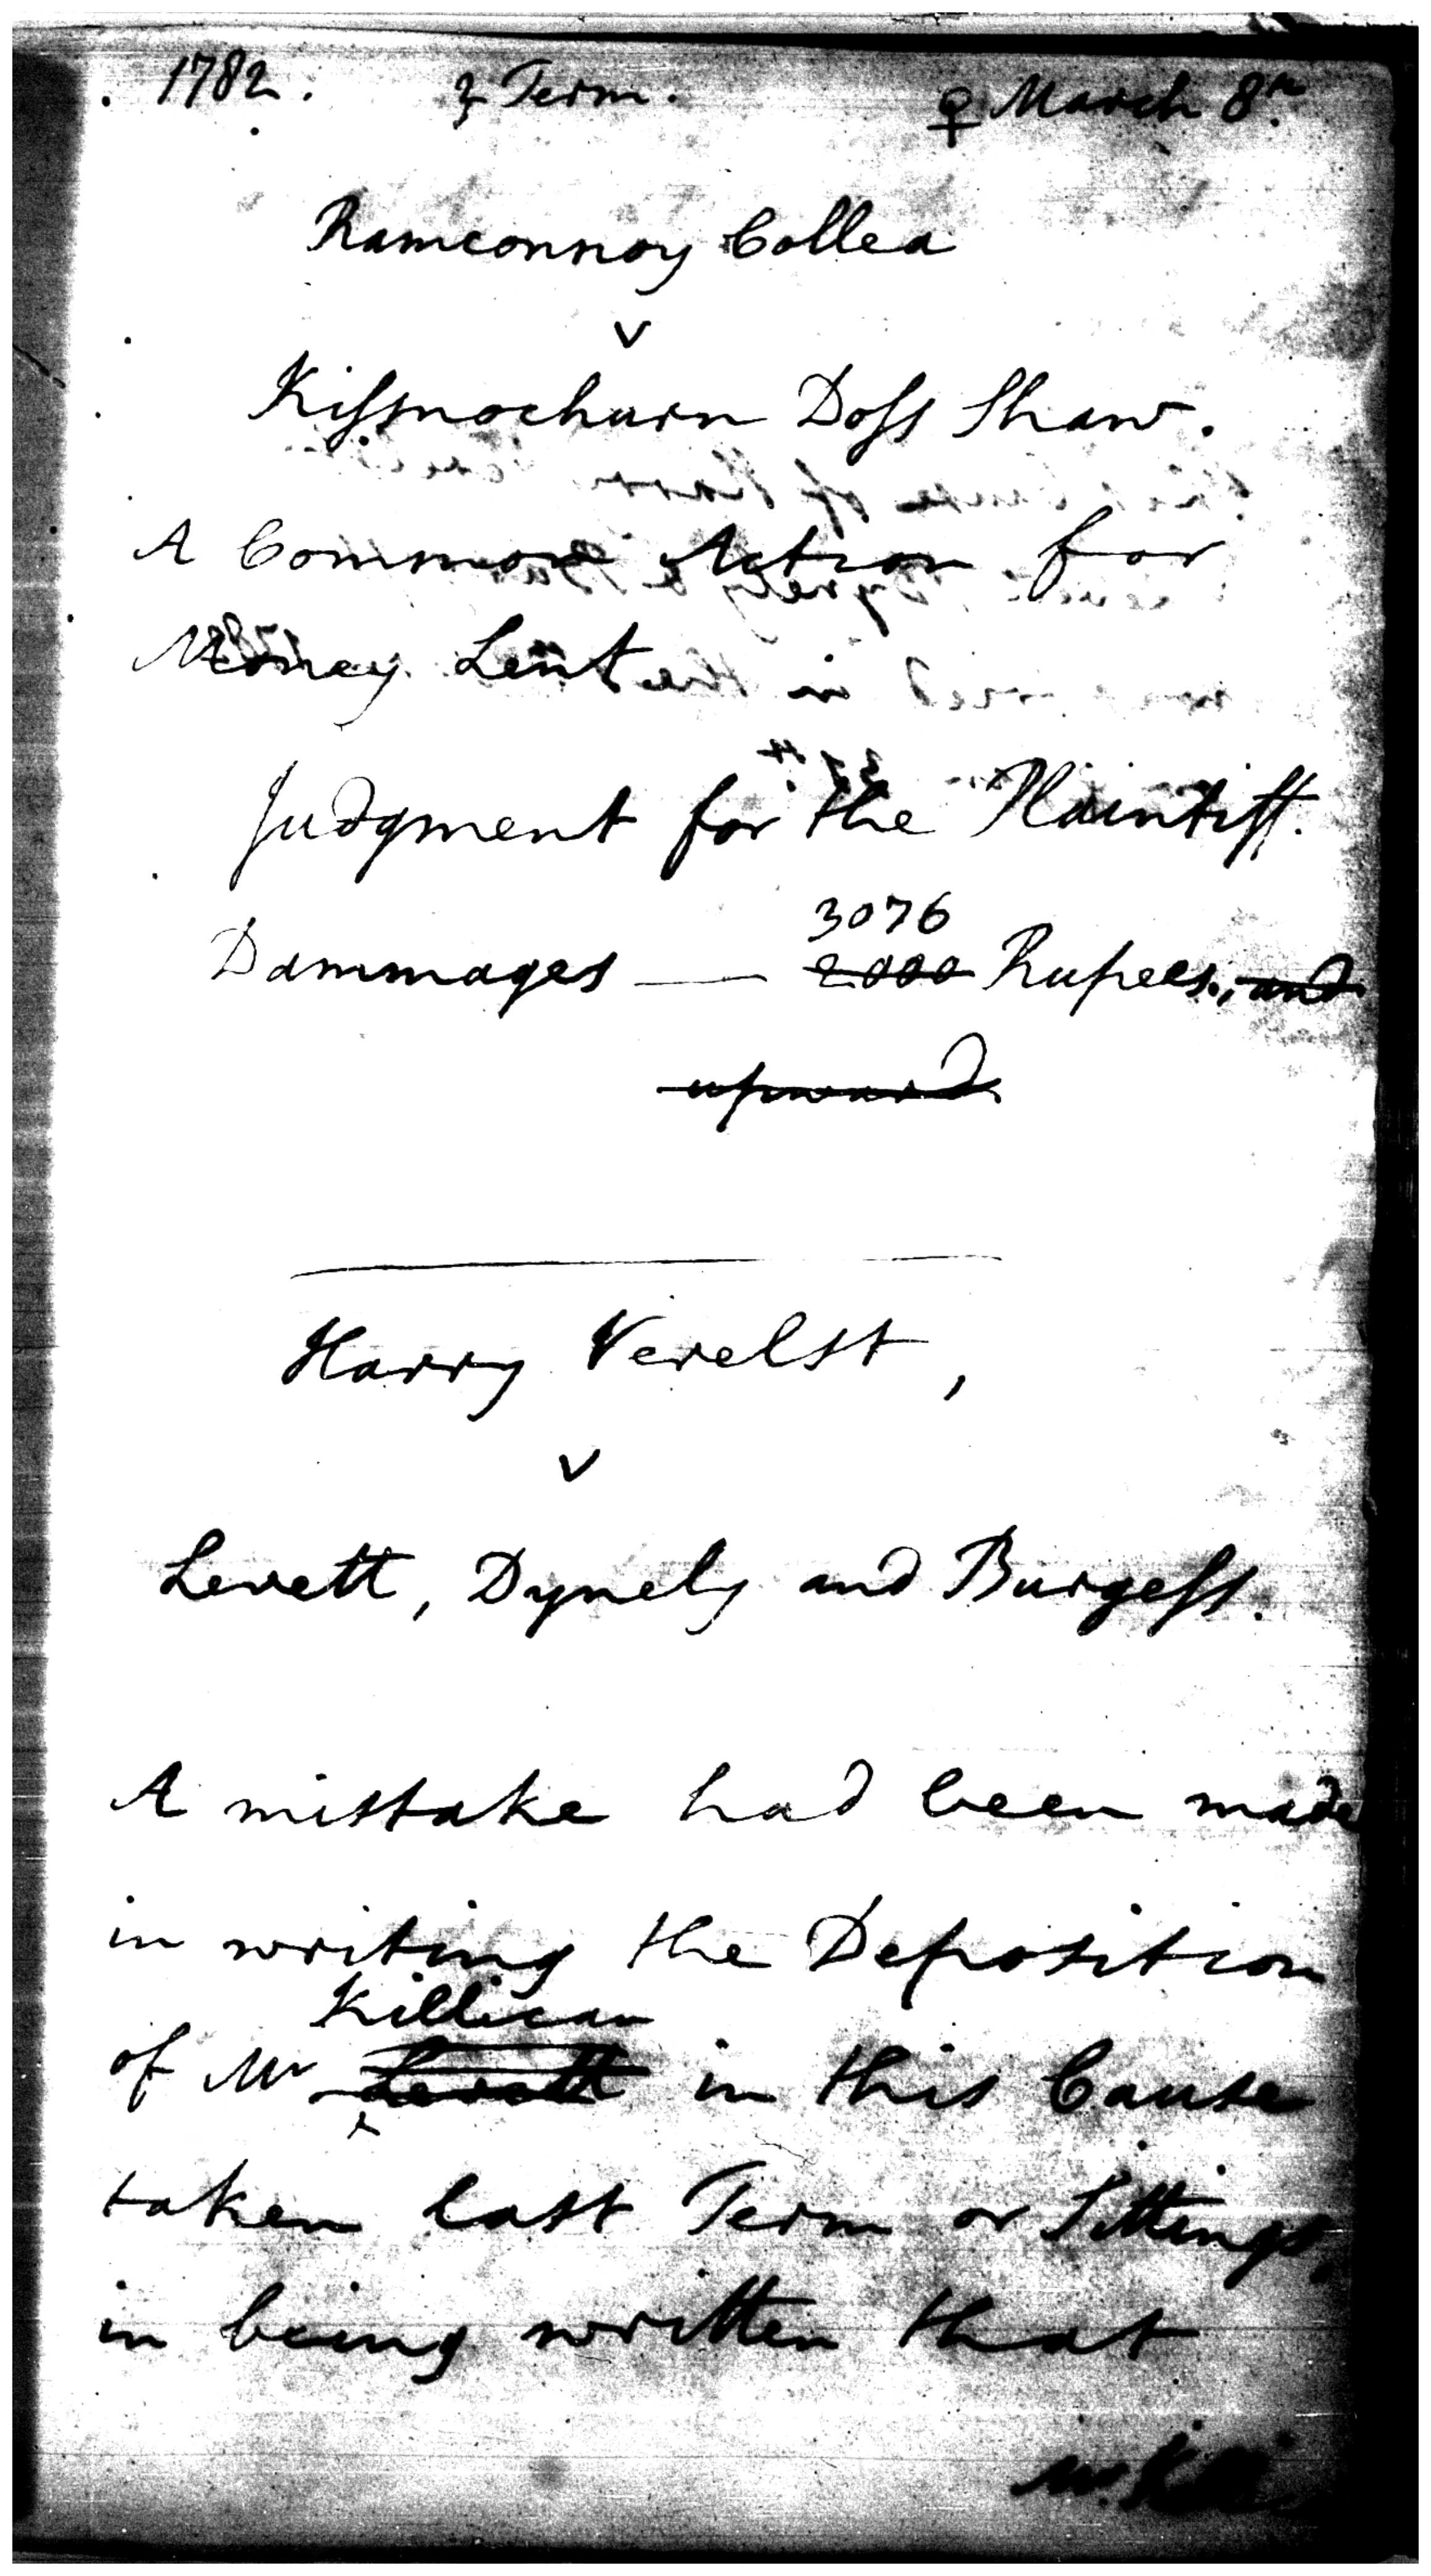 1782. Term. ♀ March 8th
Ramconnoy Collea
v
Kissnochurn Doss Shaw.
A Common Action for
Money Lent.
Judgment for the Plaintiff.
3076
Dammages — 2000 Rupees, and
upward.
Harry Verelst,
v
Levett, Dynely and Burgess.
A mistake had been made
in writing the Deposition
Killican
of Mr Levett in this Cause
taken last Term or Sittings,
in being written that
Mr. Killi